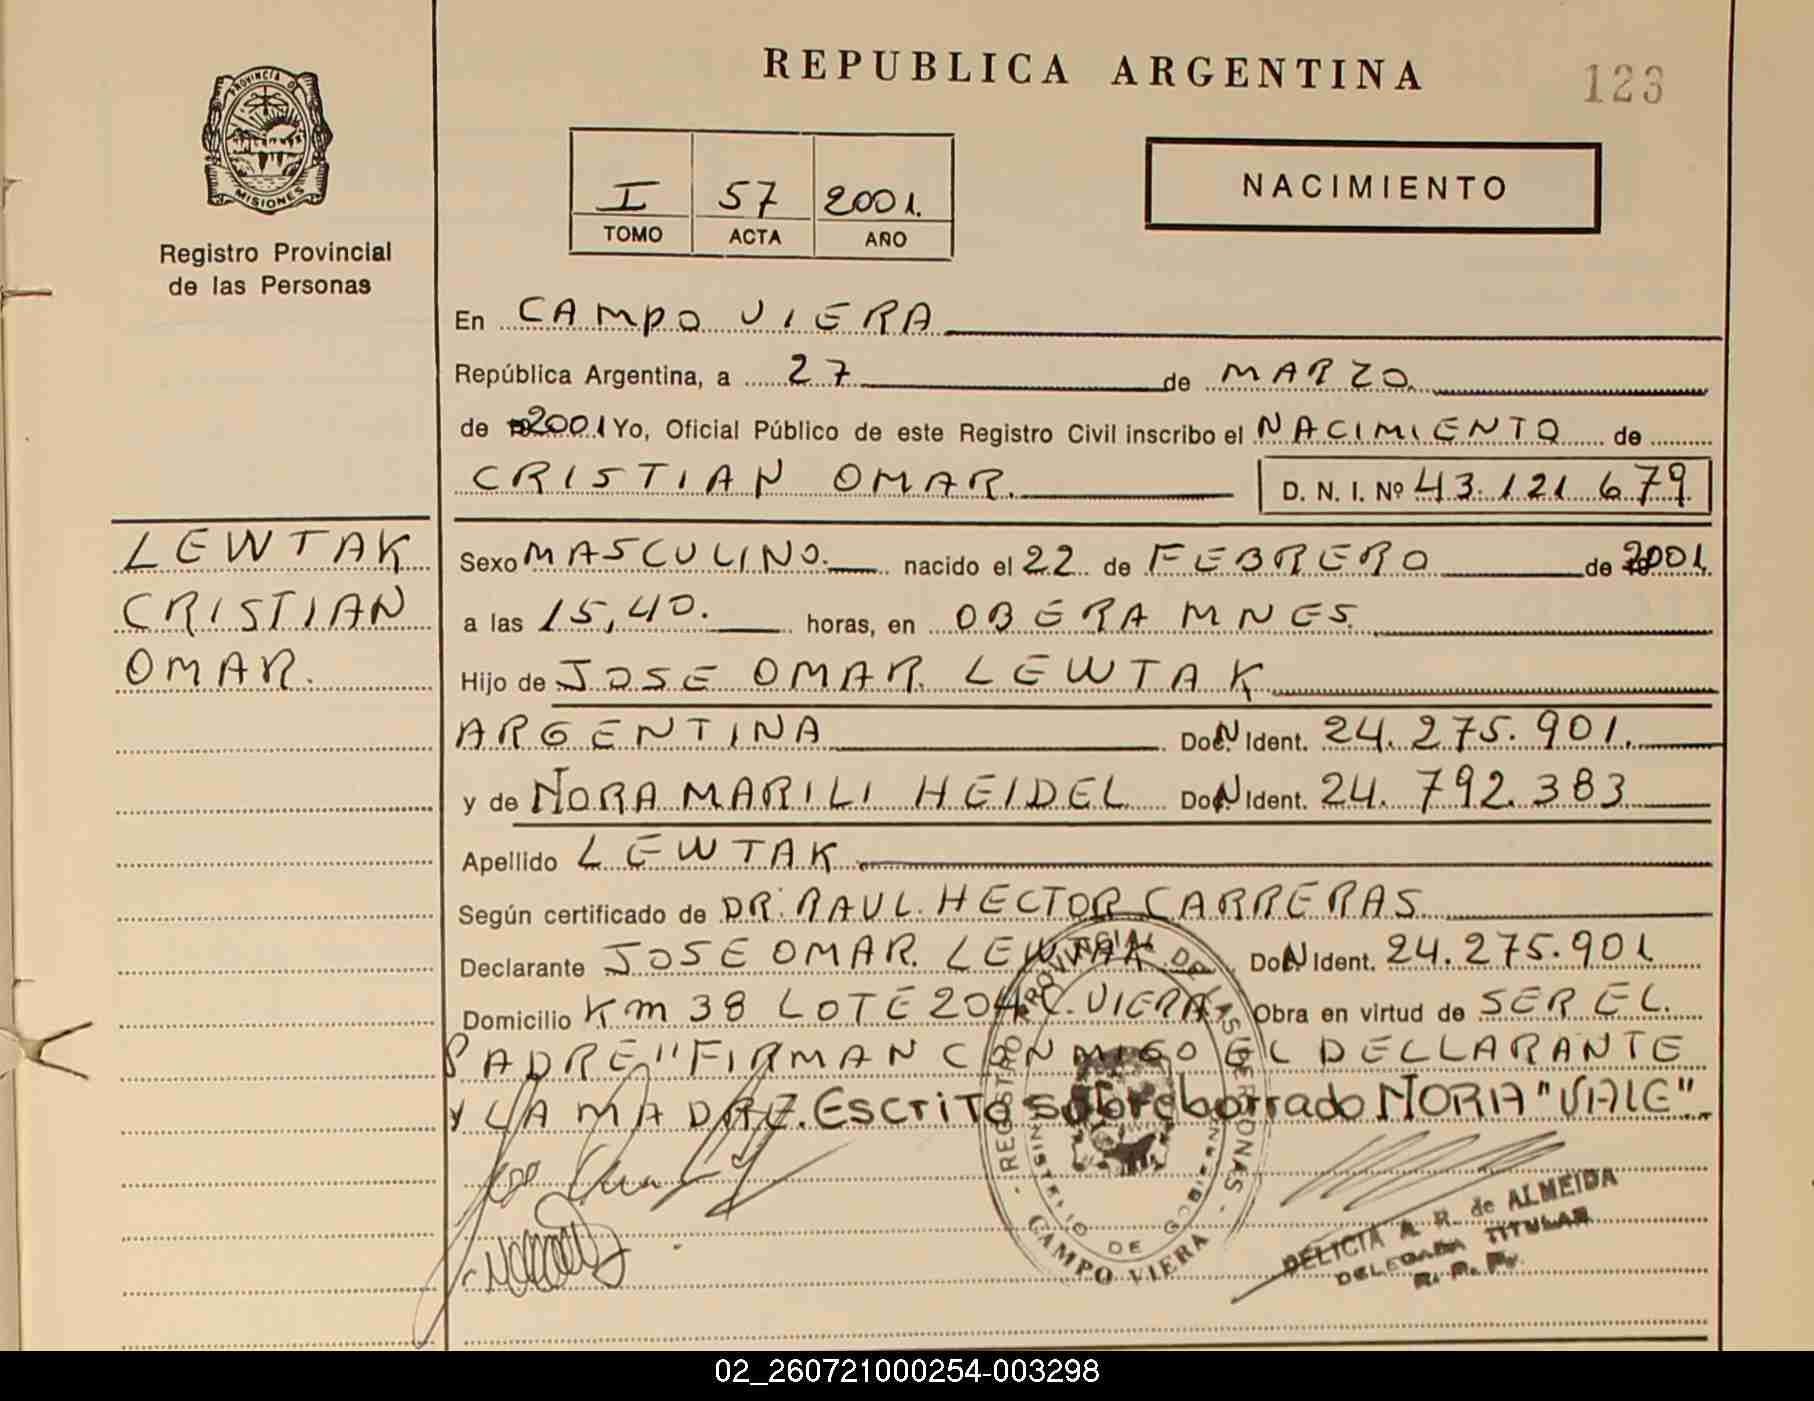 REPUBLICA ARGENTINA
123
PROVINCIA DE
MISIONES
Registro Provincial
de las Personas
I 57 2001.
TOMO ACTA AÑO
NACIMIENTO
En CAMPO VIERA
República Argentina, a 27 de MARZO
de 2001 Yo, Oficial Público de este Registro Civil inscribo el NACIMIENTO de
CRISTIAN OMAR. D. N. I. Nº 43.121.679
LEWTAK
CRISTIAN
OMAR.
Sexo MASCULINO. nacido el 22 de FEBRERO de 2001
a las 15,40. horas, en OBERA MNES.
Hijo de JOSE OMAR LEWTAK
ARGENTINA Doc. N Ident. 24.275.901.
y de NORA MARILI HEIDEL Doc. N Ident. 24.792.383
Apellido LEWTAK
Según certificado de DR. RAUL HECTOR CARRERAS
Declarante JOSE OMAR LEWTAK Doc. N Ident. 24.275.901
Domicilio Km 38 LOTE 204 C. VIERA Obra en virtud de SER EL
PADRE "FIRMAN CONMIGO EL DECLARANTE
Y LA MADRE. Escrito sobreborrado NORA "VALE".
REGISTRO PROVINCIAL DE LAS PERSONAS
MINISTERIO DE GOBIERNO
CAMPO VIERA
DELICIA A. R. de ALMEIDA
DELEGADA TITULAR
R. P. P.
02_260721000254-003298